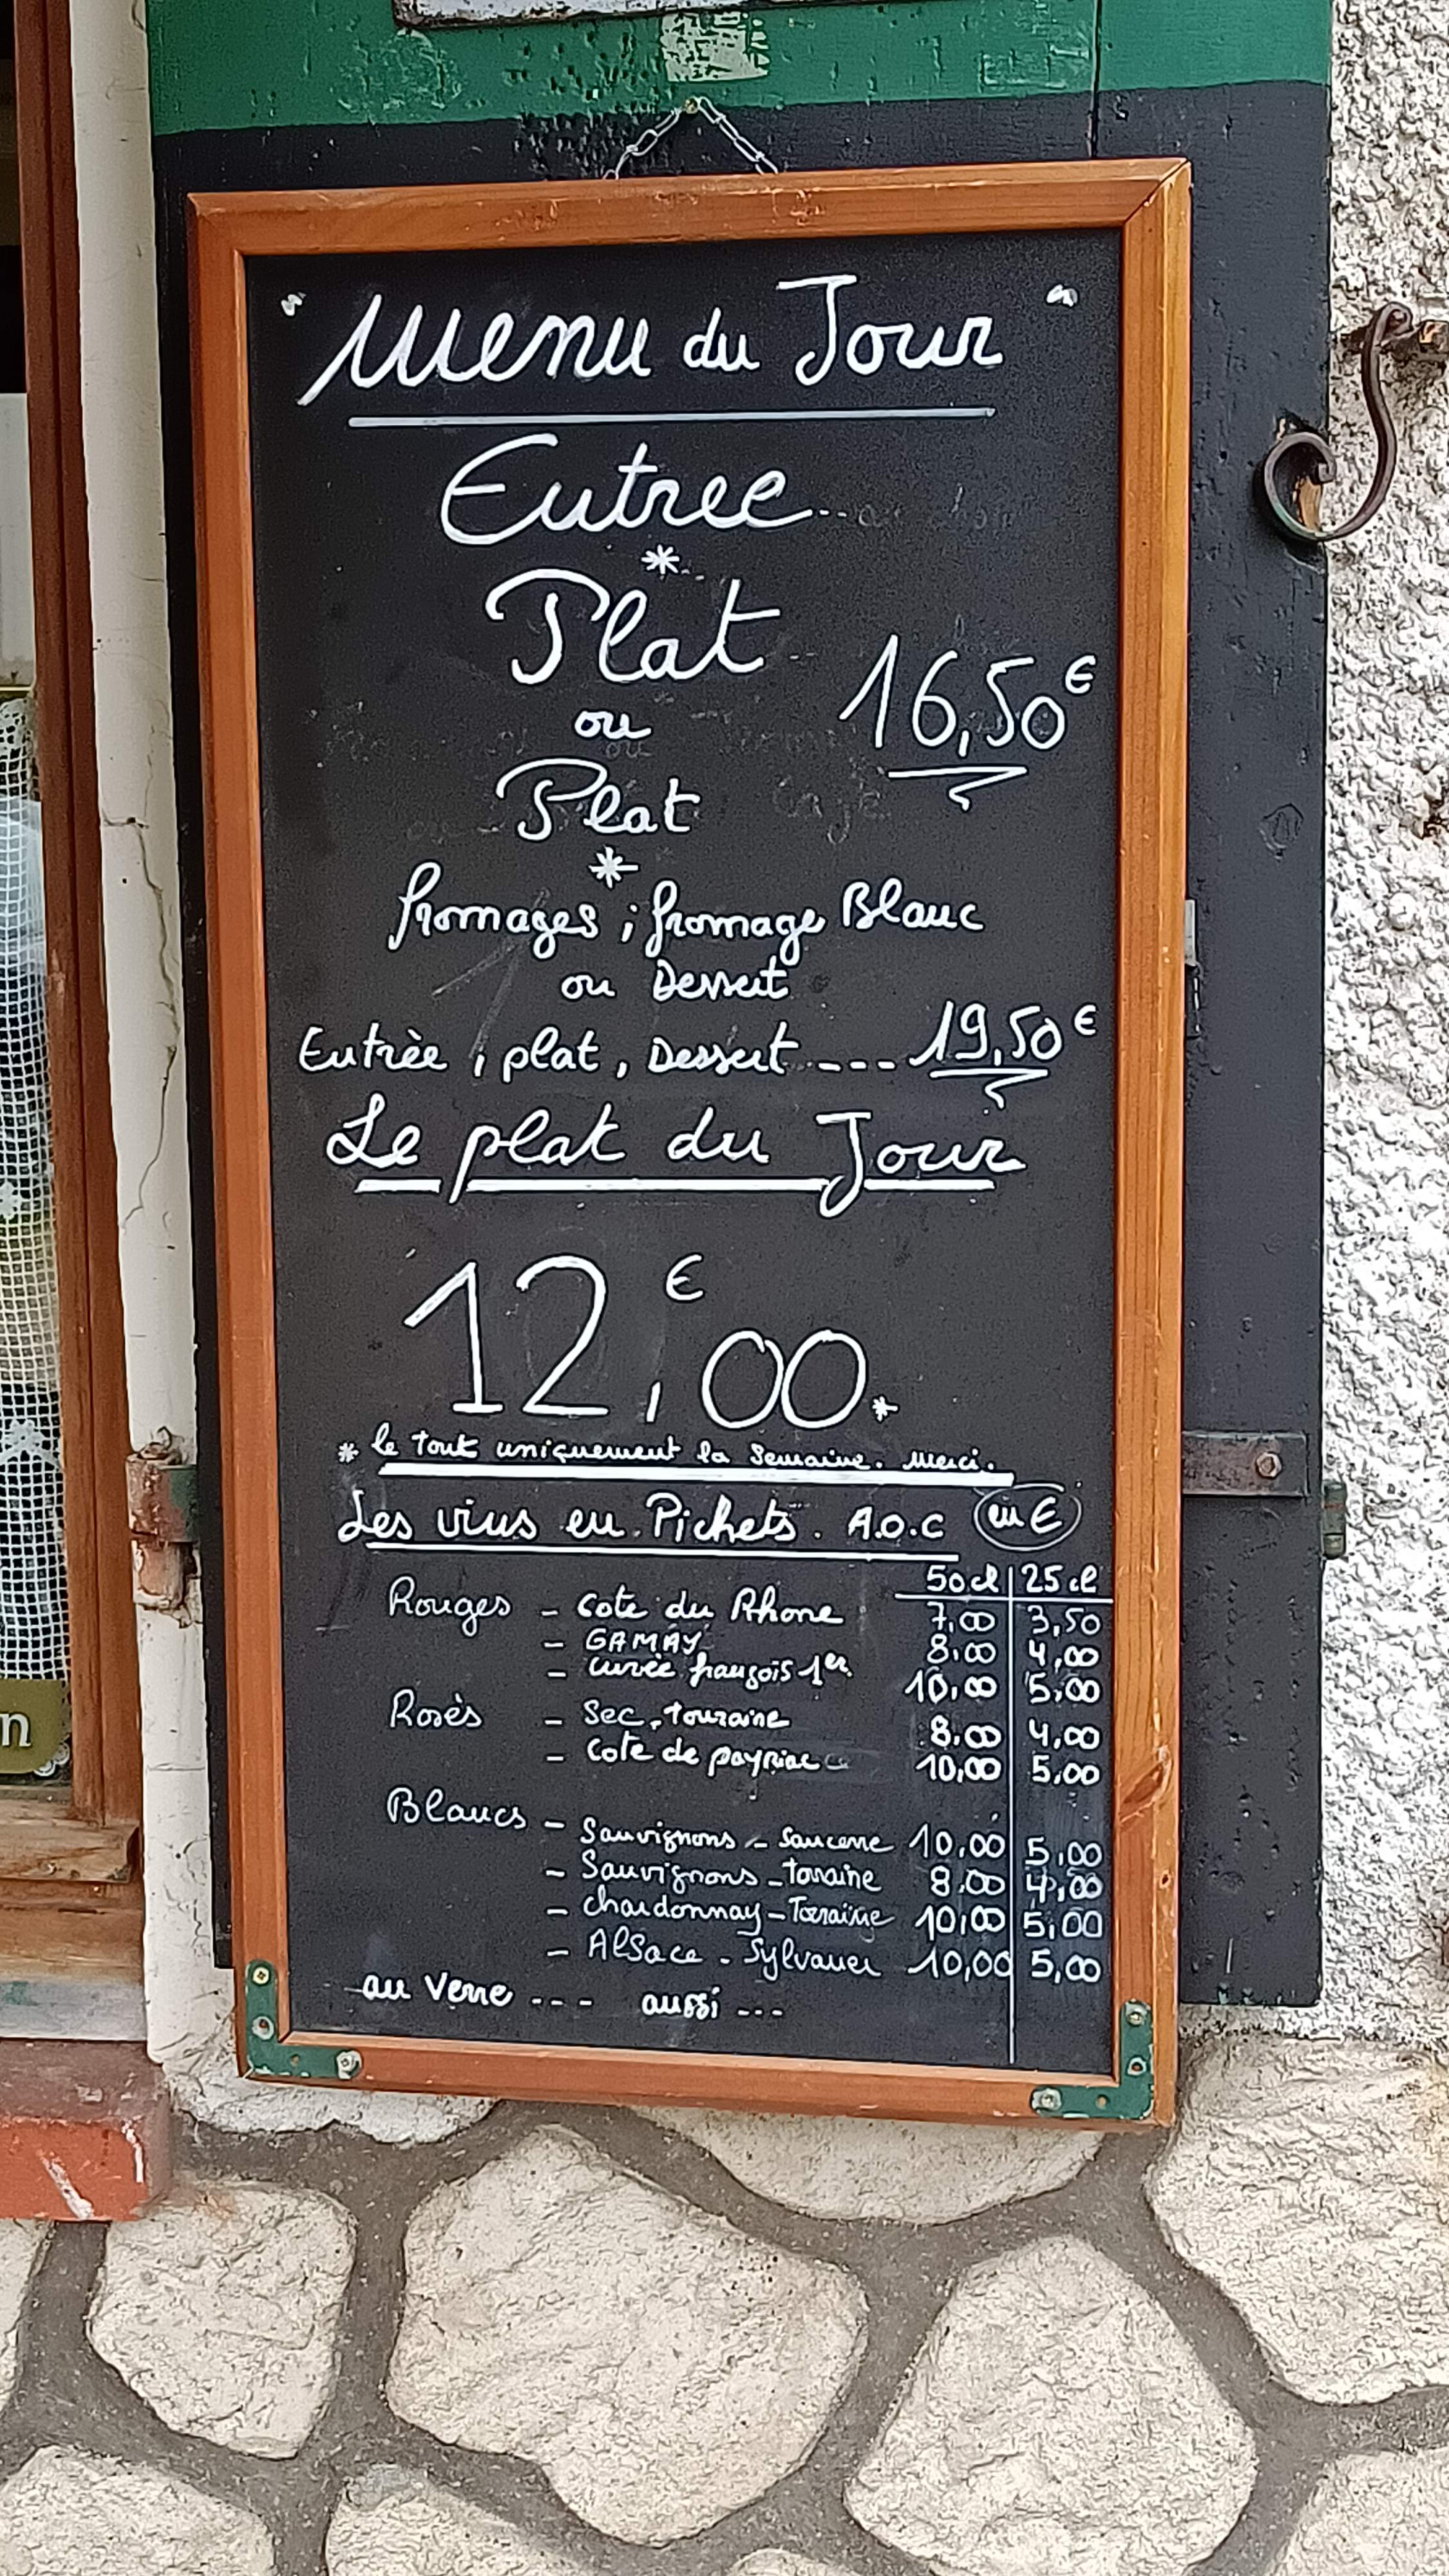 " Menu du Jour "
Entree
*
Plat
ou
16,50€
Plat
*
fromages ; fromage Blanc
ou Dessert
Entrèe , plat , Dessert --- 19,50€
Le plat du Jour
12,00€*
* le tout uniquement la Semaine. merci.
Les vins en Pichets. A.O.C en €
50cl 25cl
Rouges - Cote du Rhone 7,00 3,50
- GAMAY 8,00 4,00
- cuvèe françois 1er 10,00 5,00
Rosès - Sec, touraine 8,00 4,00
- Cote de 10,00 5,00
Blancs - Sauvignons - Sancerre 10,00 5,00
- Sauvignons - torraine 8,00 4,00
- chardonnay - Torraine 10,00 5,00
- AlSace - Sylvaner 10,00 5,00
au Verre --- aussi ---
n